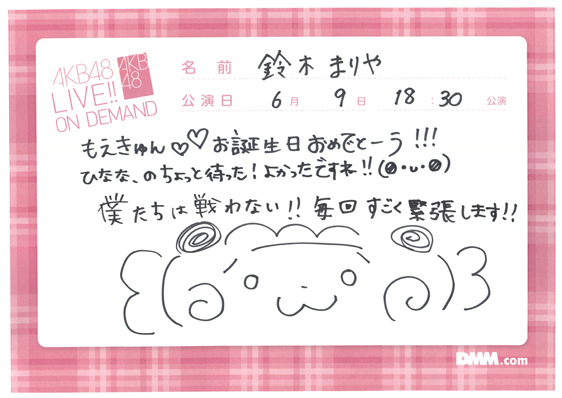 AKB48
LIVE!!
ON DEMAND
AKB
48
名前 鈴木まりや
公演日 6月 9日 18:30 公演
もえきゅん♡♡お誕生日おめでとーう!!!
ひなな、のちょっと待った!よかったですね!!(0・u・0)
僕たちは戦わない!!毎回すごく緊張します!!
DMM.com